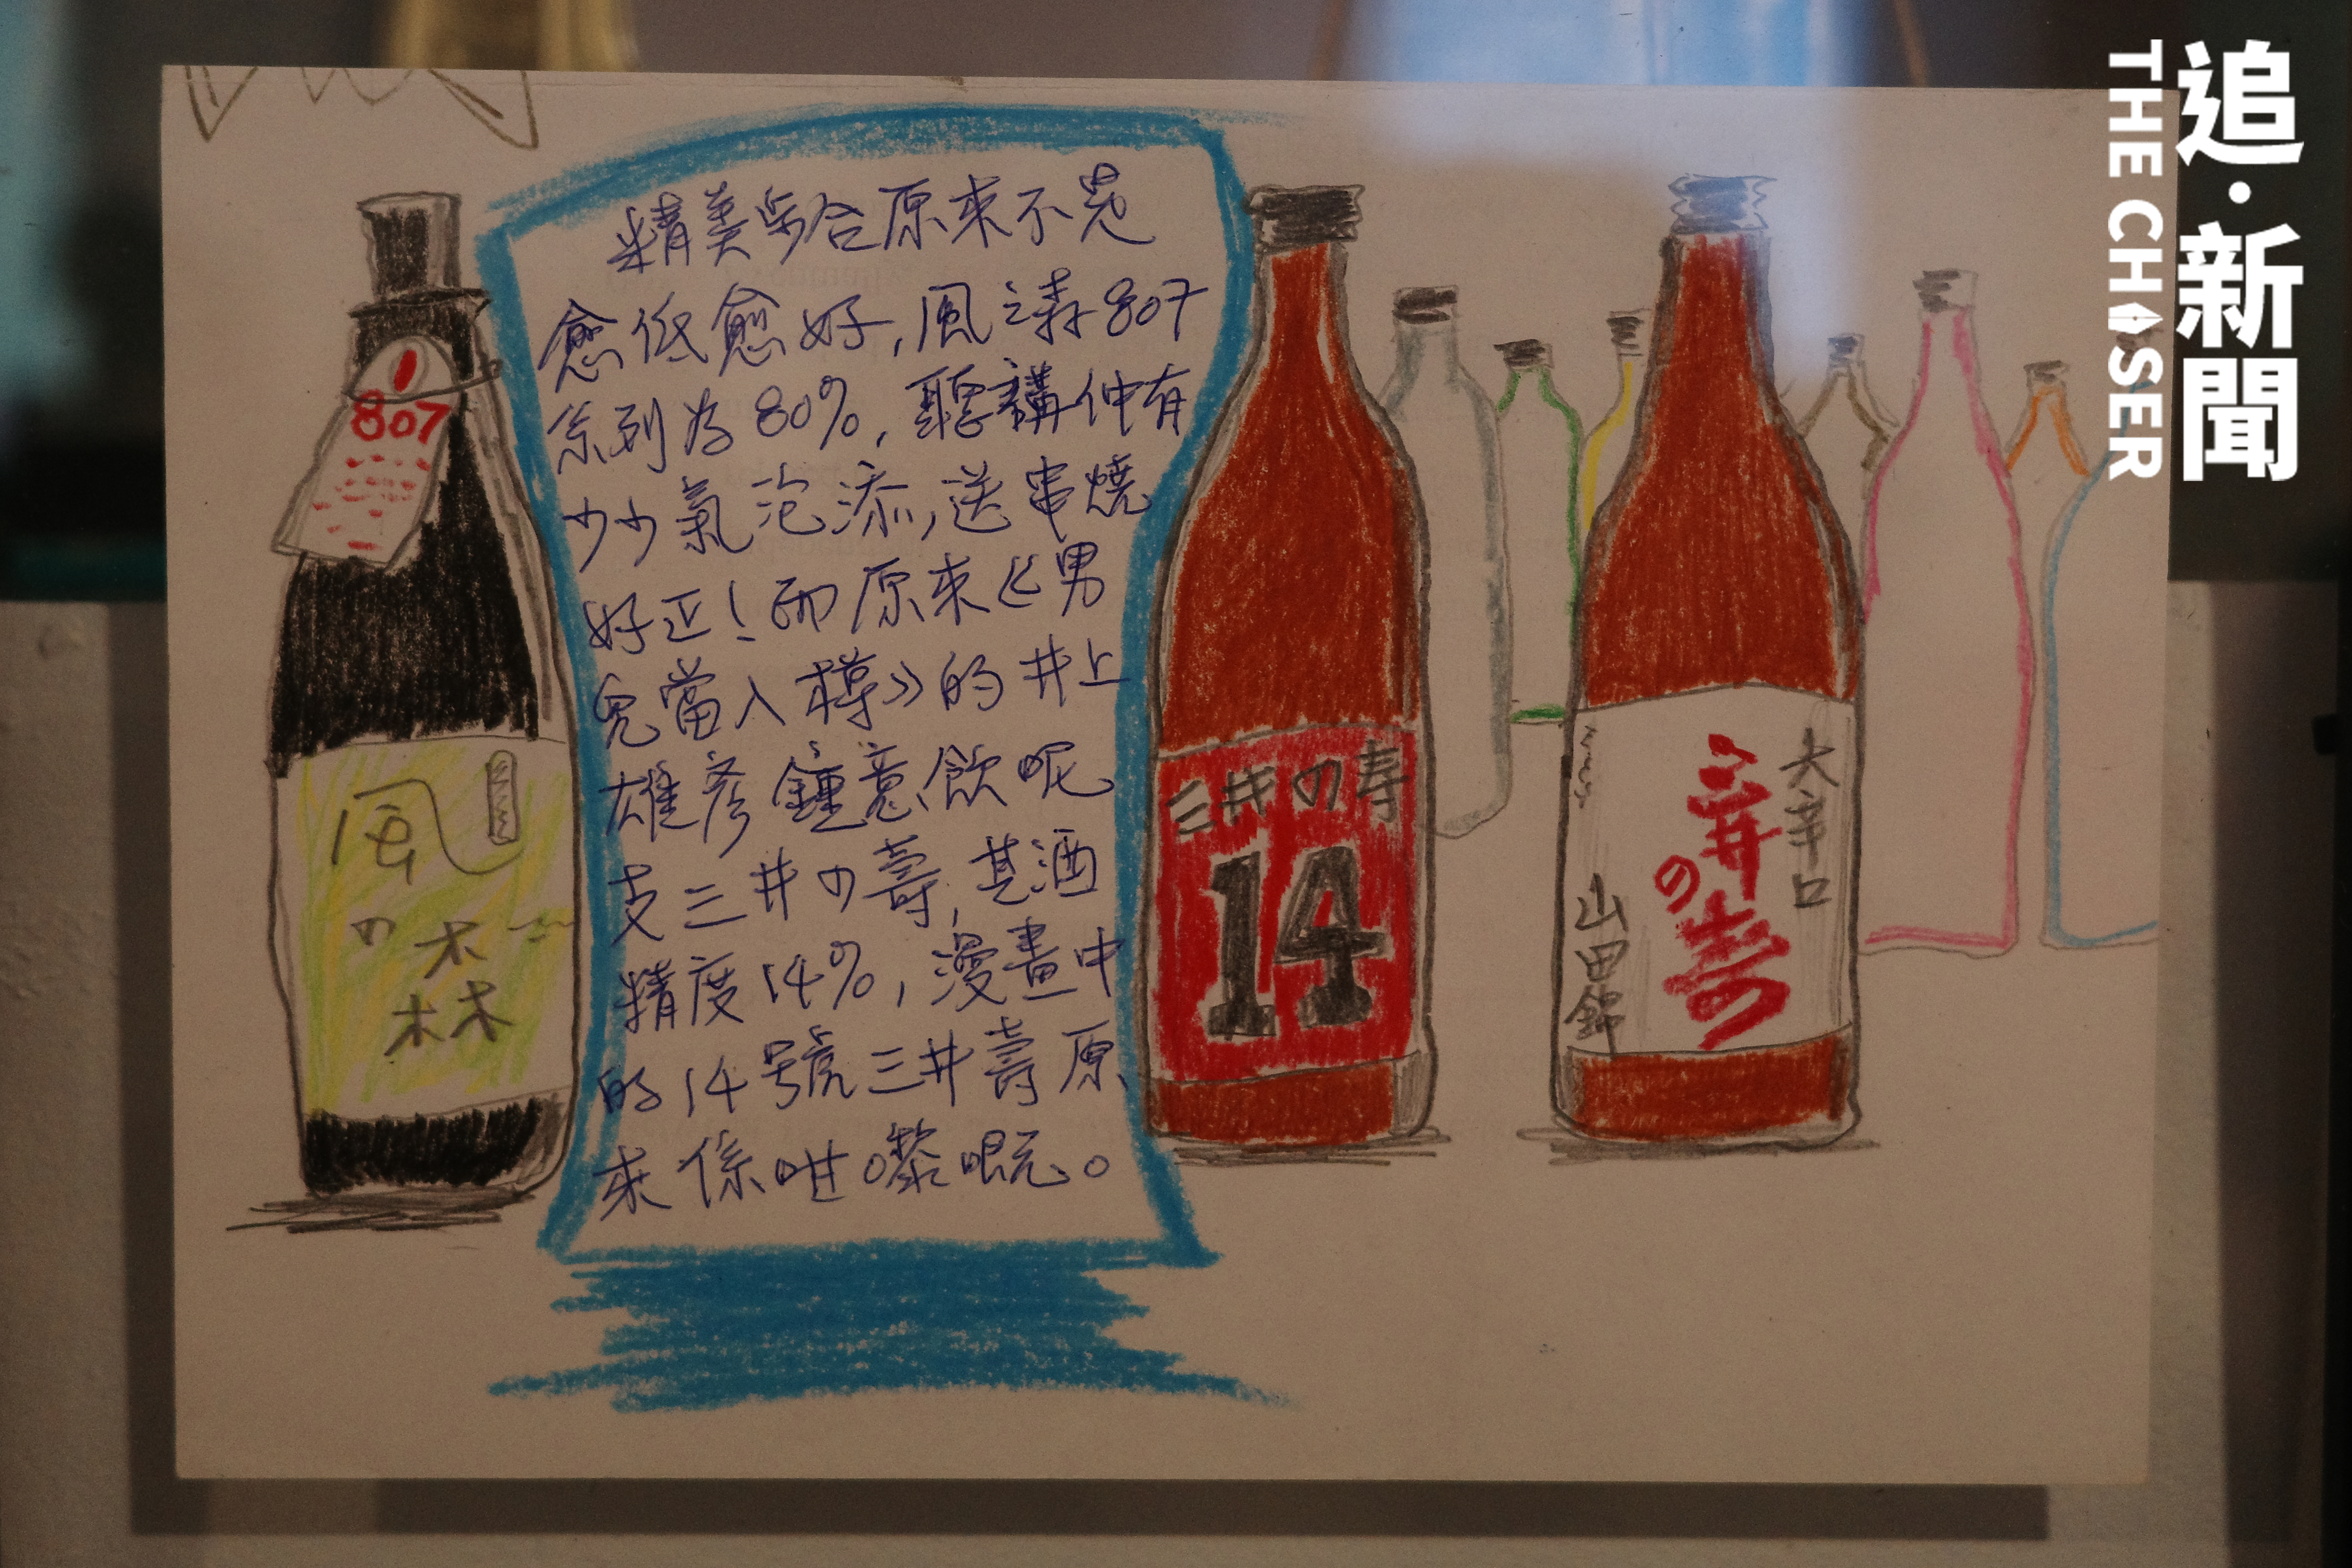 精美步合原來不是
愈低愈好,風之森807
系列為80%,聽講仲有
少少氣泡添,送串燒
好正!而原來《男
兒當入樽》的井上
雄彥鍾意飲呢
支三井の壽,其酒
精度14%,漫畫中
的14號三井壽原
來係咁嚟嘅。
807
風の森
三井の寿
14
大辛口
三井の寿
山田錦
追·新聞
THE CHASER